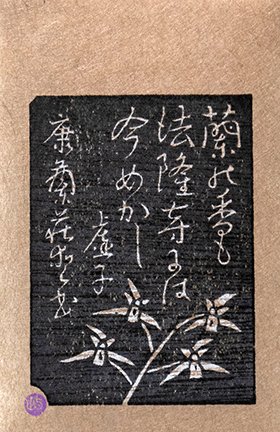 蘭の香も
法隆寺には
今めかし
虚子
康蘭荘